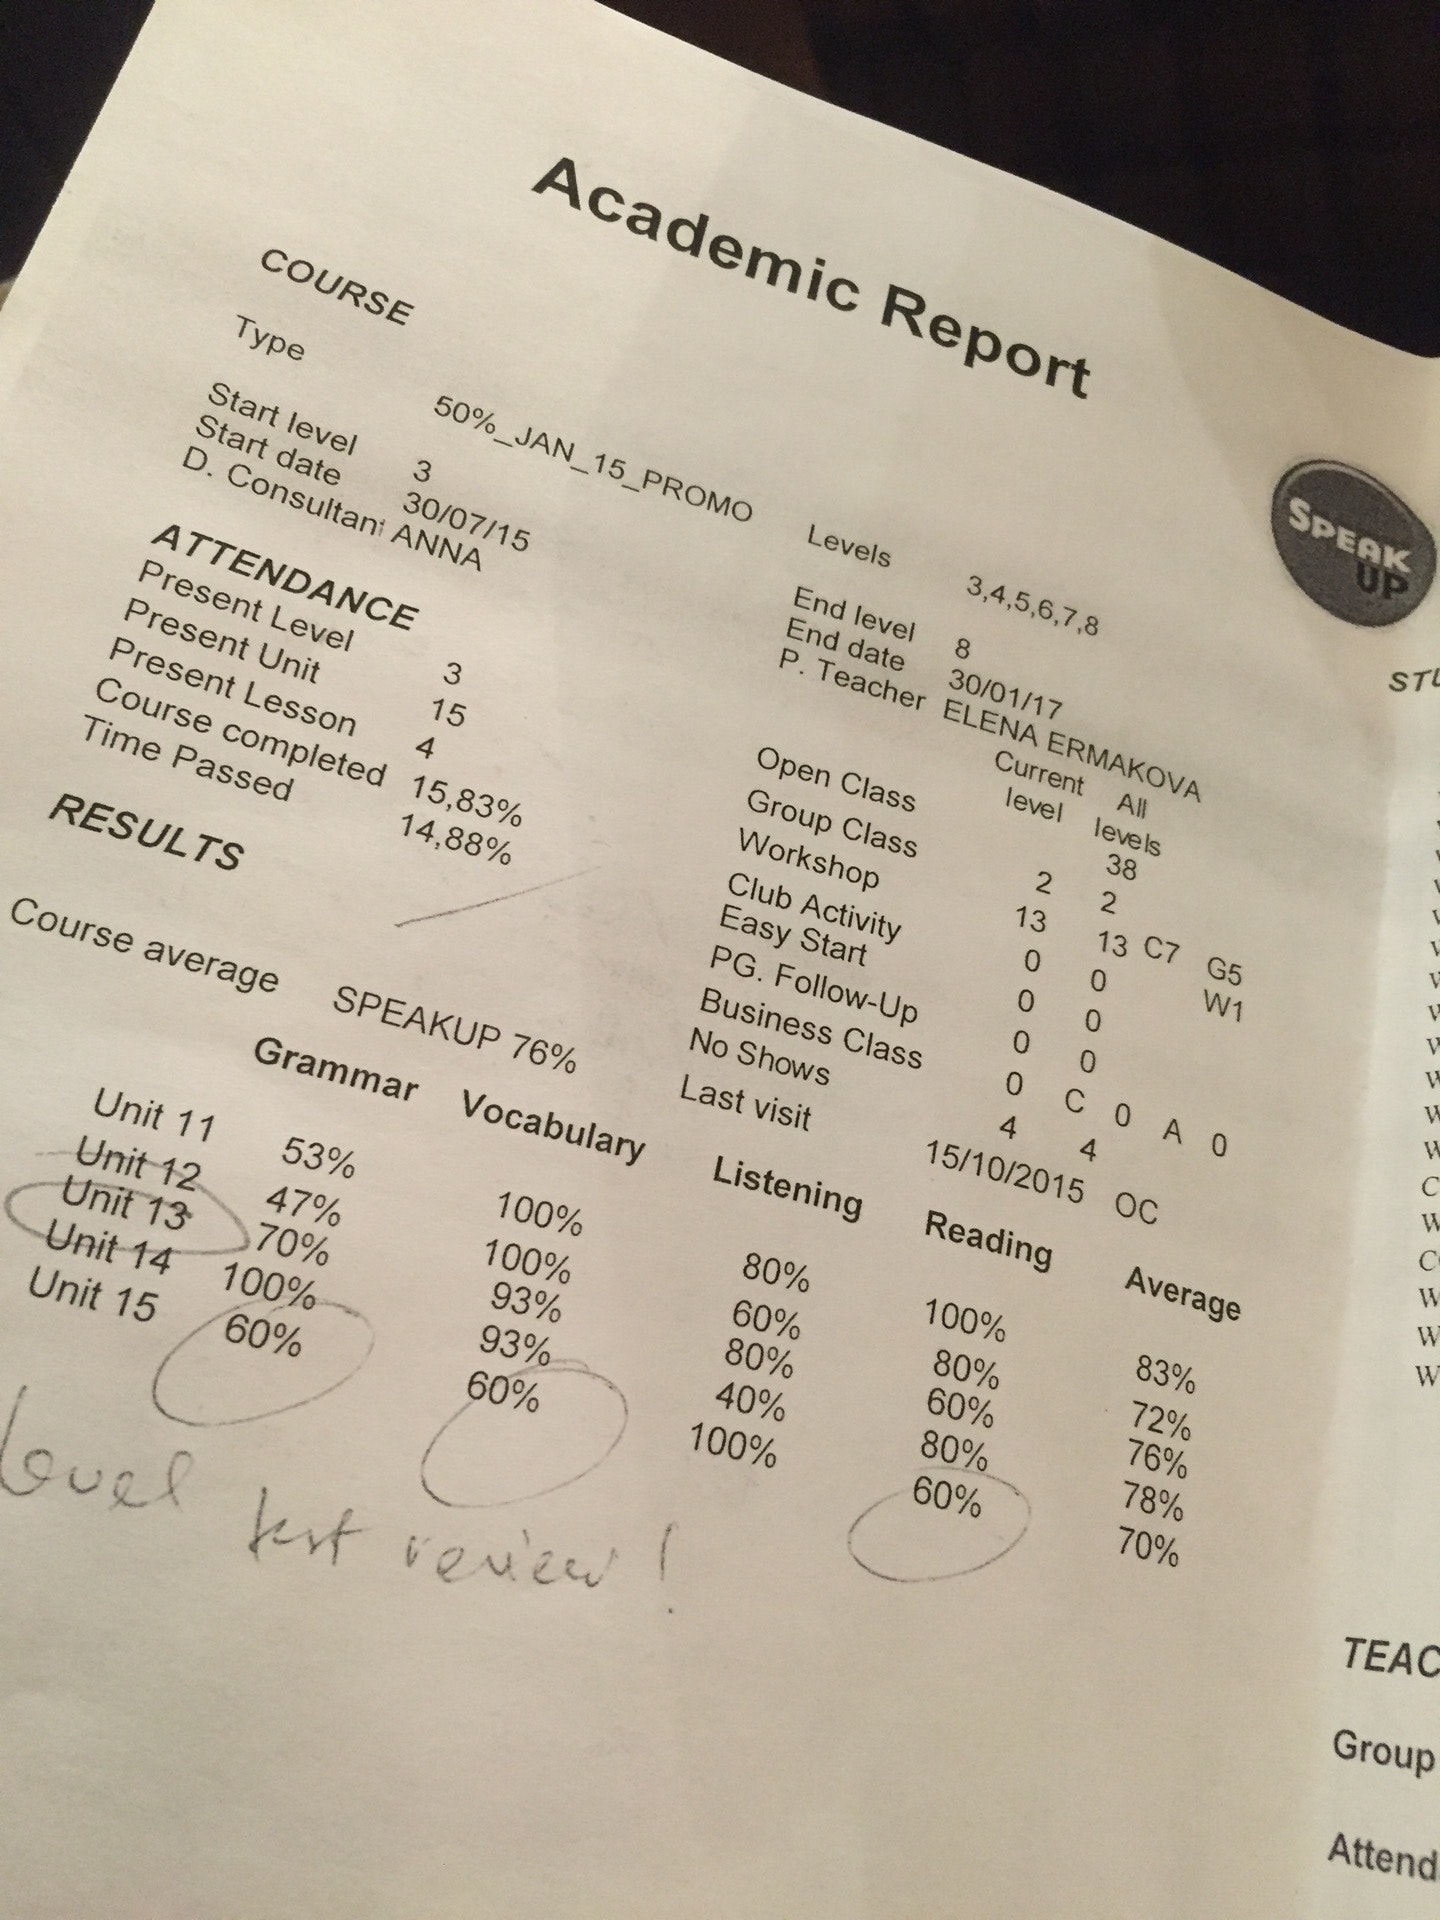 Academic Report
COURSE
Type 50%_JAN_15_PROMO Levels 3,4,5,6,7,8
Start level 3 End level 8
Start date 30/07/15 End date 30/01/17
D. Consultant ANNA P. Teacher ELENA ERMAKOVA
SPEAK
UP
ATTENDANCE
Current level All levels
Present Level 3
Present Unit 15
Present Lesson 4
Course completed 15,83%
Time Passed 14,88%
Open Class 38
Group Class 2 2
Workshop 13 13 C7 G5 W1
Club Activity 0 0
Easy Start 0 0
PG. Follow-Up 0 0
Business Class 0 C 0 A 0
No Shows 4 4
Last visit 15/10/2015 OC
RESULTS
Course average SPEAKUP 76%
Grammar Vocabulary Listening Reading Average
Unit 11 53% 100% 80% 100% 83%
Unit 12 47% 100% 60% 80% 72%
Unit 13 70% 93% 80% 60% 76%
Unit 14 100% 93% 40% 80% 78%
Unit 15 60% 60% 100% 60% 70%
Level test review!
TEAC
Group
Attend